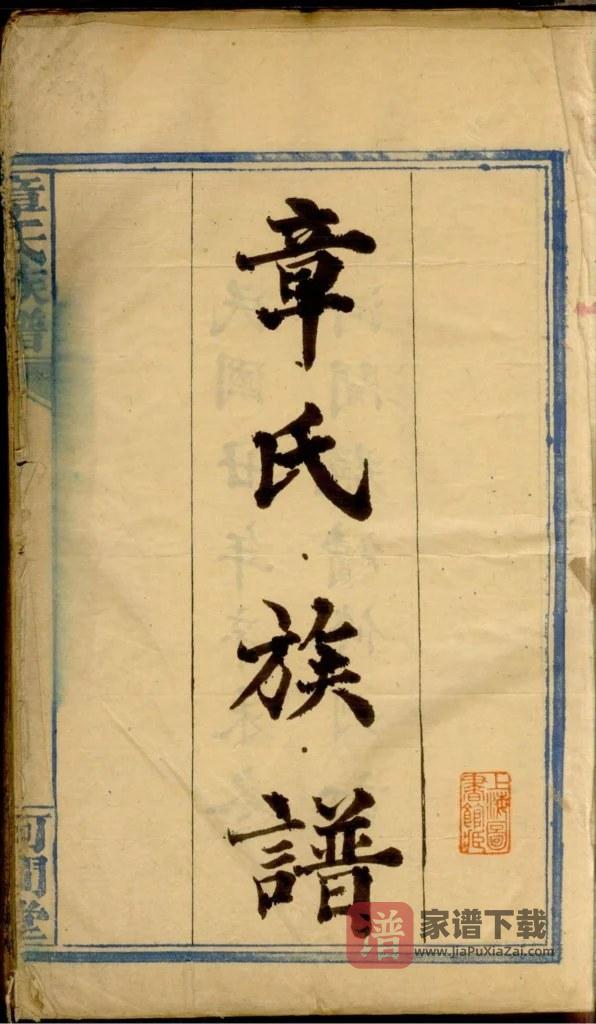 章氏族譜
上海圖書館藏
章氏族譜
河間堂
家谱下载
www.JiaPuXiaZai.com
谱